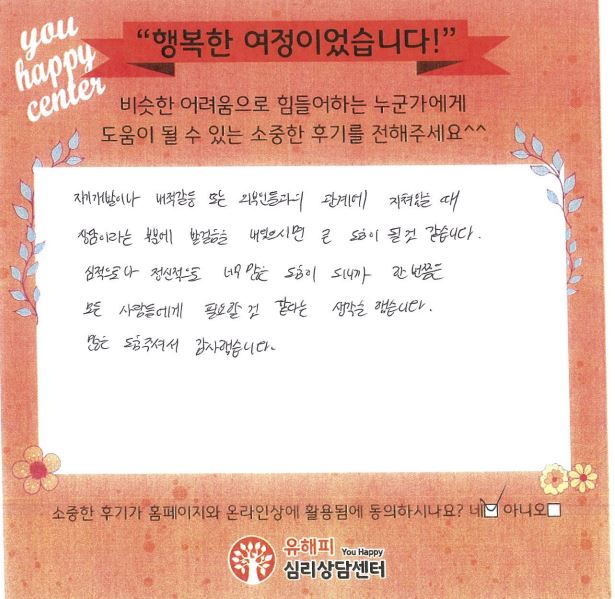 you
happy
center
“행복한 여정이었습니다!”
비슷한 어려움으로 힘들어하는 누군가에게
도움이 될 수 있는 소중한 후기를 전해주세요^^
자기개발이나 내적갈등 또는 외부인들과의 관계에 지쳐있을 때
상담이라는 부분에 발걸음을 내딛으시면 큰 도움이 될 것 같습니다.
심적으로나 정신적으로 너무 많은 도움이 되니까 한 번쯤은
모든 사람들에게 필요할 것 같다는 생각을 했습니다.
많은 도움주셔서 감사했습니다.
소중한 후기가 홈페이지와 온라인상에 활용됨에 동의하시나요? 네 아니오
유해피 You Happy
심리상담센터